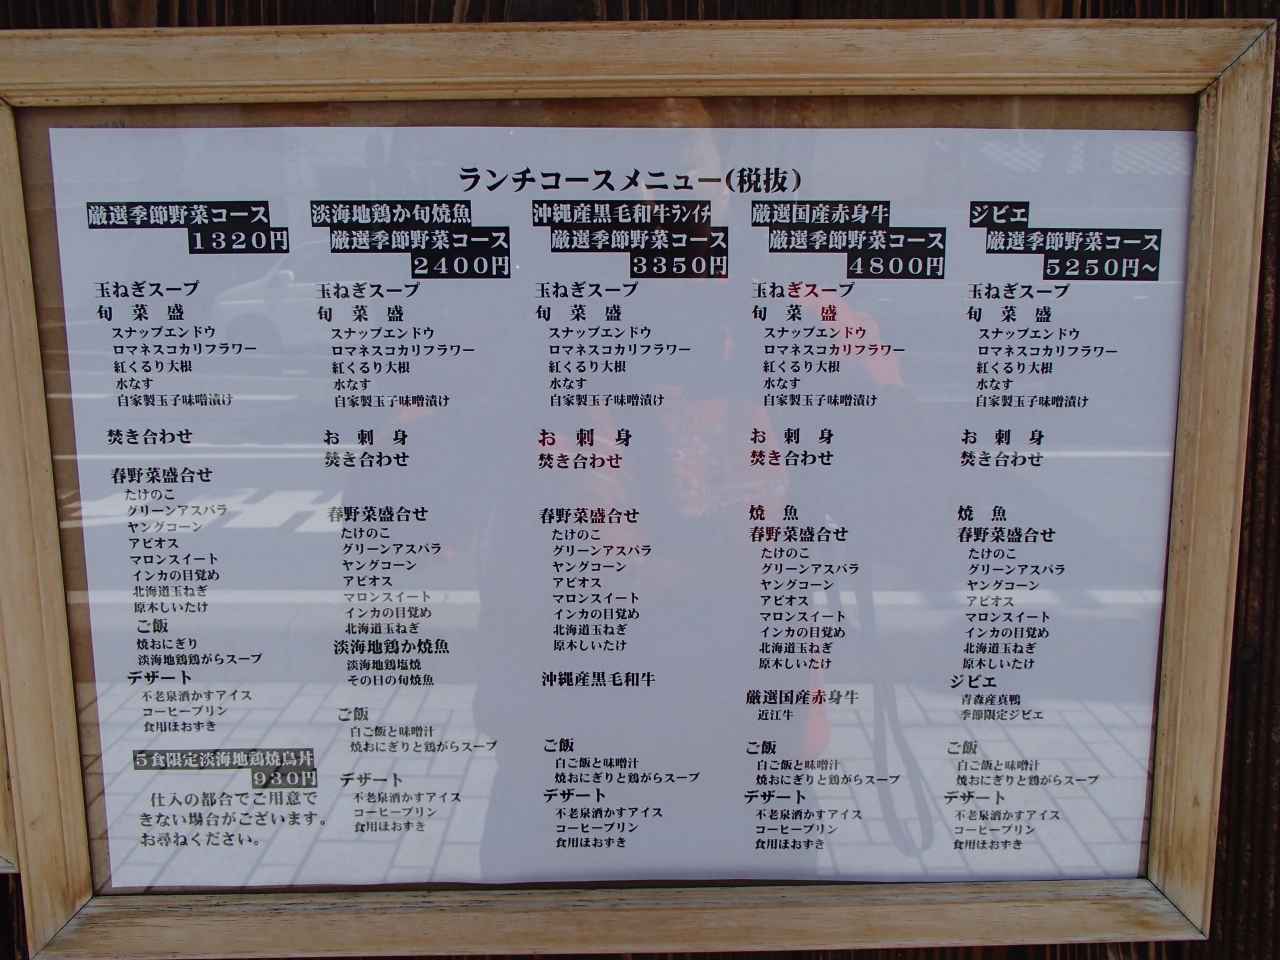 ランチコースメニュー(税抜)
厳選季節野菜コース
1320円
玉ねぎスープ
旬 菜 盛
スナップエンドウ
ロマネスコカリフラワー
紅くるり大根
水なす
自家製玉子味噌漬け
焚き合わせ
春野菜盛合せ
たけのこ
グリーンアスパラ
ヤングコーン
アピオス
マロンスイート
インカの目覚め
北海道玉ねぎ
原木しいたけ
ご飯
焼おにぎり
淡海地鶏鶏がらスープ
デザート
不老泉酒かすアイス
コーヒープリン
食用ほおずき
5食限定淡海地鶏焼鳥丼
930円
仕入の都合でご用意で
きない場合がございます。
お尋ねください。
淡海地鶏か旬焼魚
厳選季節野菜コース
2400円
玉ねぎスープ
旬 菜 盛
スナップエンドウ
ロマネスコカリフラワー
紅くるり大根
水なす
自家製玉子味噌漬け
お 刺 身
焚き合わせ
春野菜盛合せ
たけのこ
グリーンアスパラ
ヤングコーン
アピオス
マロンスイート
インカの目覚め
北海道玉ねぎ
淡海地鶏か焼魚
淡海地鶏塩焼
その日の旬焼魚
ご飯
白ご飯と味噌汁
焼おにぎりと鶏がらスープ
デザート
不老泉酒かすアイス
コーヒープリン
食用ほおずき
沖縄産黒毛和牛ﾗﾝｲﾁ
厳選季節野菜コース
3350円
玉ねぎスープ
旬 菜 盛
スナップエンドウ
ロマネスコカリフラワー
紅くるり大根
水なす
自家製玉子味噌漬け
お 刺 身
焚き合わせ
春野菜盛合せ
たけのこ
グリーンアスパラ
ヤングコーン
アピオス
マロンスイート
インカの目覚め
北海道玉ねぎ
原木しいたけ
沖縄産黒毛和牛
ご飯
白ご飯と味噌汁
焼おにぎりと鶏がらスープ
デザート
不老泉酒かすアイス
コーヒープリン
食用ほおずき
厳選国産赤身牛
厳選季節野菜コース
4800円
玉ねぎスープ
旬 菜 盛
スナップエンドウ
ロマネスコカリフラワー
紅くるり大根
水なす
自家製玉子味噌漬け
お 刺 身
焚き合わせ
焼 魚
春野菜盛合せ
たけのこ
グリーンアスパラ
ヤングコーン
アピオス
マロンスイート
インカの目覚め
北海道玉ねぎ
原木しいたけ
厳選国産赤身牛
近江牛
ご飯
白ご飯と味噌汁
焼おにぎりと鶏がらスープ
デザート
不老泉酒かすアイス
コーヒープリン
食用ほおずき
ジビエ
厳選季節野菜コース
5250円～
玉ねぎスープ
旬 菜 盛
スナップエンドウ
ロマネスコカリフラワー
紅くるり大根
水なす
自家製玉子味噌漬け
お 刺 身
焚き合わせ
焼 魚
春野菜盛合せ
たけのこ
グリーンアスパラ
ヤングコーン
アピオス
マロンスイート
インカの目覚め
北海道玉ねぎ
原木しいたけ
ジビエ
青森産真鴨
季節限定ジビエ
ご飯
白ご飯と味噌汁
焼おにぎりと鶏がらスープ
デザート
不老泉酒かすアイス
コーヒープリン
食用ほおずき